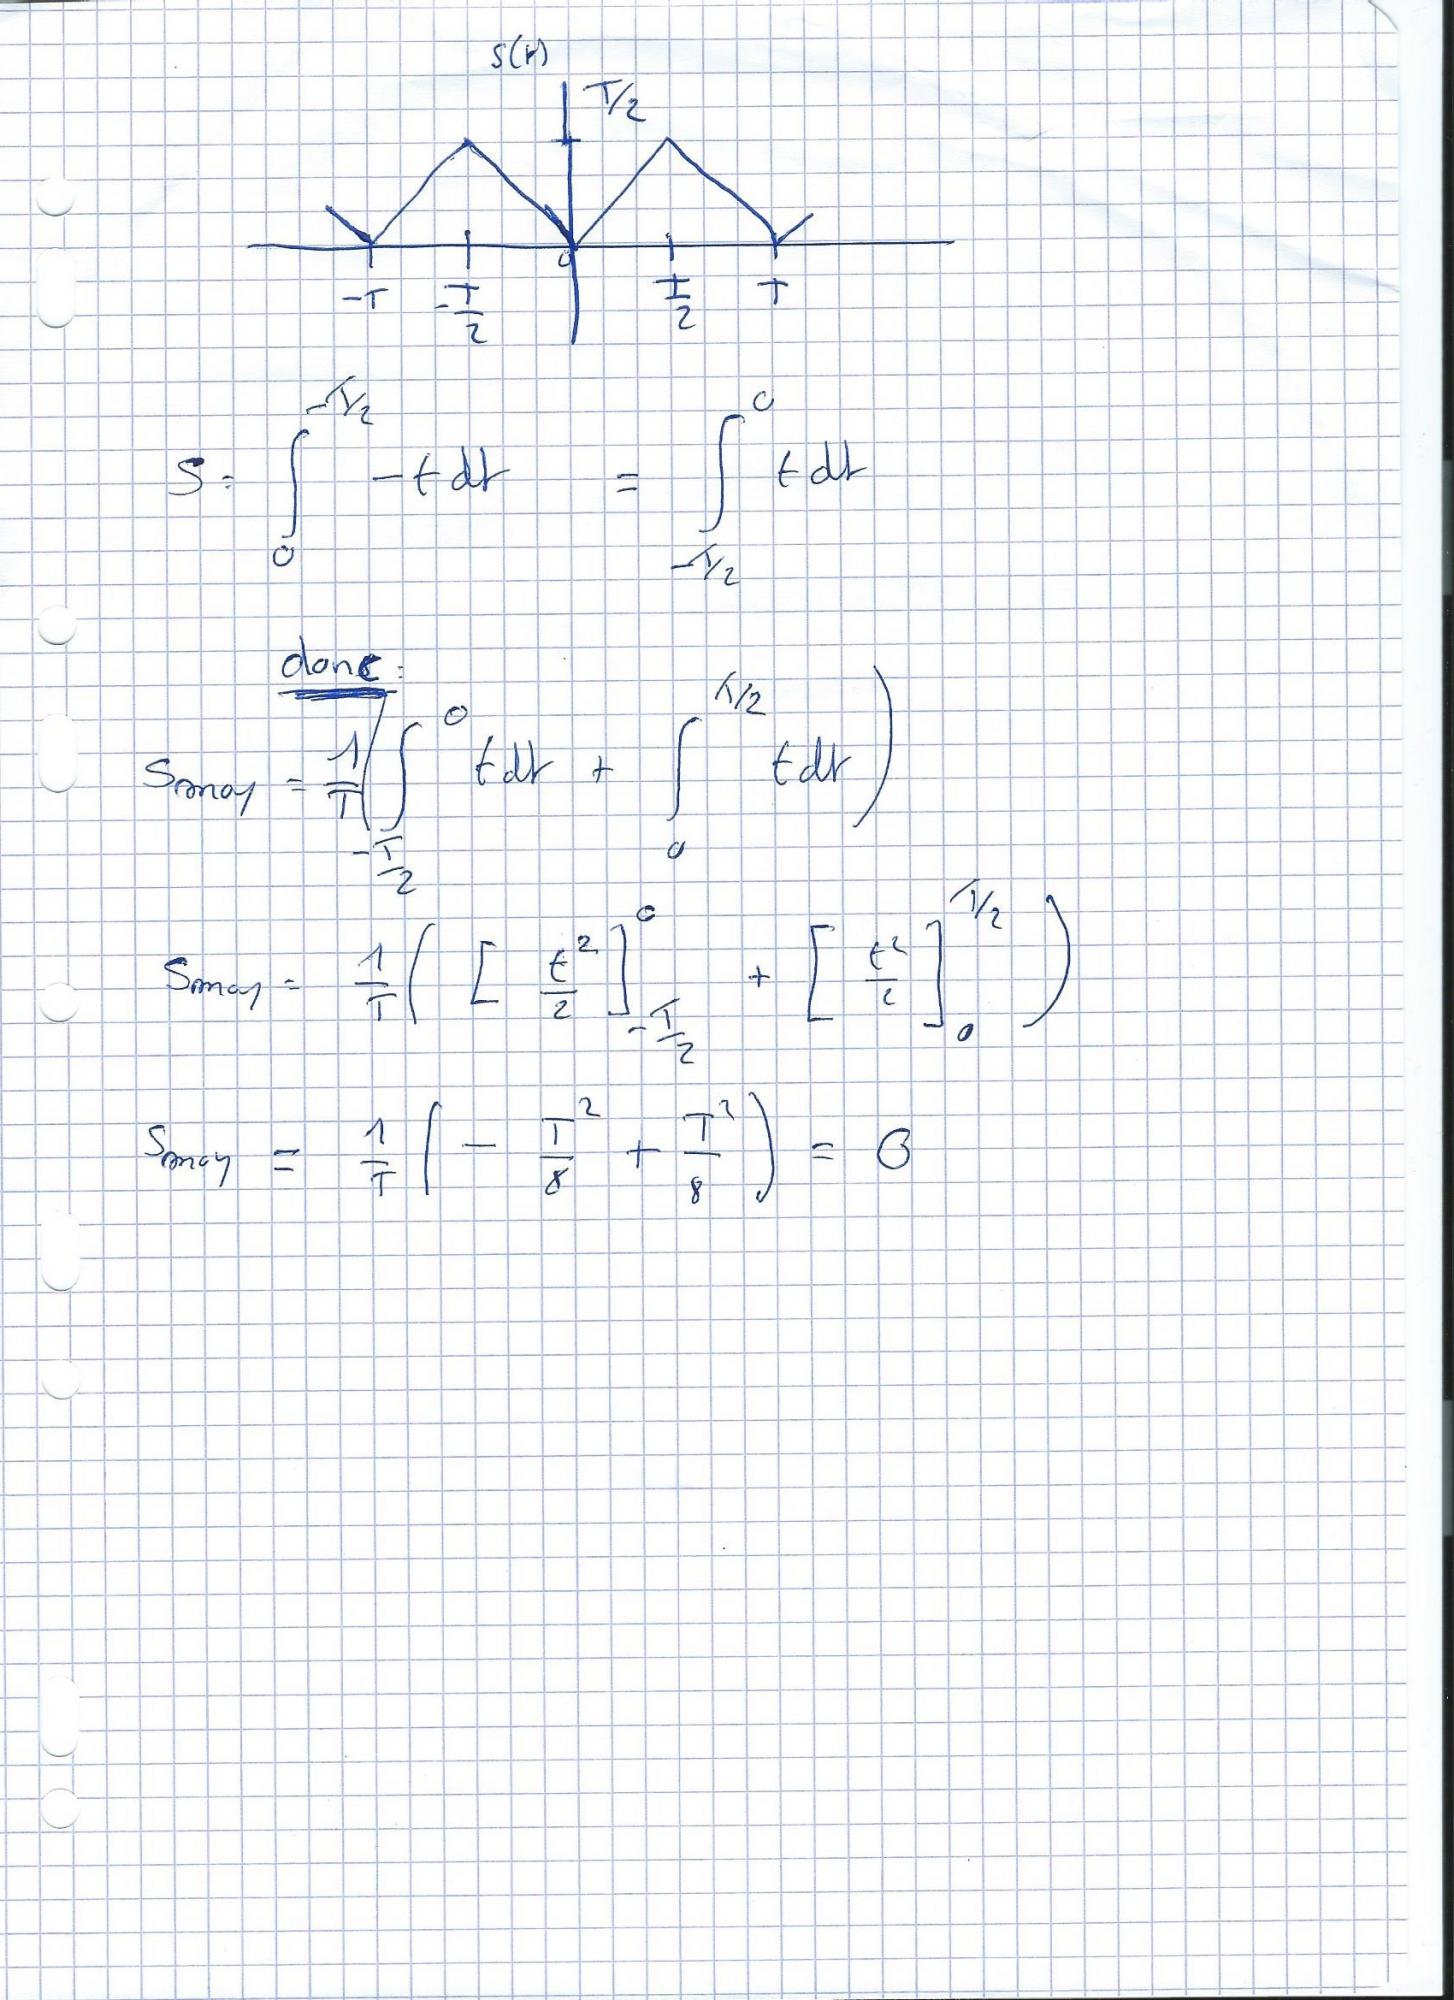 S(t)
T/2
-T -T/2 0 T/2 T
S = ∫_0^{-T/2} -t dt = ∫_{-T/2}^0 t dt
donc :
Smoy = 1/T ( ∫_{-T/2}^0 t dt + ∫_0^{T/2} t dt )
Smoy = 1/T ( [ t²/2 ]_{-T/2}^0 + [ t²/2 ]_0^{T/2} )
Smoy = 1/T ( - T²/8 + T²/8 ) = 0